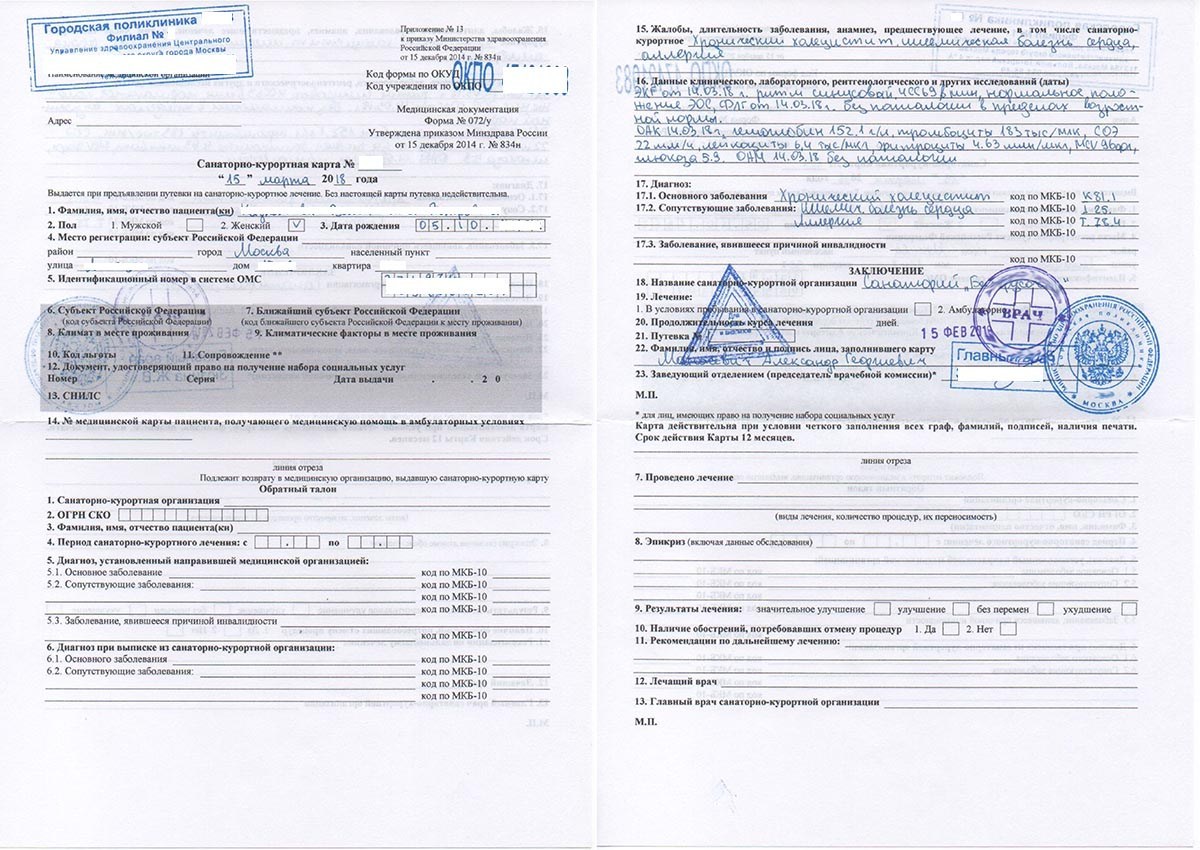 Городская поликлиника
Филиал №
Управление здравоохранения Центрального
города Москвы
Наименование медицинской организации
Адрес
Приложение № 13
к приказу Министерства здравоохранения
Российской Федерации
от 15 декабря 2014 г. № 834н
Код формы по ОКУД
Код учреждения по ОКПО
ОКПО
Медицинская документация
Форма № 072/у
Утверждена приказом Минздрава России
от 15 декабря 2014 г. № 834н
Санаторно-курортная карта №
"15" марта 2018 года
Выдается при предъявлении путевки на санаторно-курортное лечение. Без настоящей карты путевка недействительна.
1. Фамилия, имя, отчество пациента(ки)
2. Пол 1. Мужской 2. Женский V 3. Дата рождения 05.10.
4. Место регистрации: субъект Российской Федерации
район город Москва населенный пункт
улица дом квартира
5. Идентификационный номер в системе ОМС
6. Субъект Российской Федерации 7. Ближайший субъект Российской Федерации
(код субъекта Российской Федерации) (код ближайшего субъекта Российской Федерации к месту проживания)
8. Климат в месте проживания 9. Климатические факторы в месте проживания
10. Код льготы 11. Сопровождение **
12. Документ, удостоверяющий право на получение набора социальных услуг
Номер Серия Дата выдачи . . 2 0
13. СНИЛС
14. № медицинской карты пациента, получающего медицинскую помощь в амбулаторных условиях
линия отреза
Подлежит возврату в медицинскую организацию, выдавшую санаторно-курортную карту
Обратный талон
1. Санаторно-курортная организация
2. ОГРН СКО
3. Фамилия, имя, отчество пациента(ки)
4. Период санаторно-курортного лечения: с . по .
5. Диагноз, установленный направившей медицинской организацией:
5.1. Основное заболевание код по МКБ-10
5.2. Сопутствующие заболевания: код по МКБ-10
код по МКБ-10
код по МКБ-10
5.3. Заболевание, явившееся причиной инвалидности
код по МКБ-10
6. Диагноз при выписке из санаторно-курортной организации:
6.1. Основного заболевания код по МКБ-10
6.2. Сопутствующие заболевания: код по МКБ-10
код по МКБ-10
код по МКБ-10
15. Жалобы, длительность заболевания, анамнез, предшествующее лечение, в том числе санаторно-
курортное Хронический холецистит, ишемическая болезнь сердца,
аллергия
16. Данные клинического, лабораторного, рентгенологического и других исследований (даты)
ЭКГ от 14.03.18 г. ритм синусовой ЧСС 69 в мин, нормальное поло-
жение ЭОС, ФЛГ от 14.03.18г. Без патологии в пределах возраст-
ной нормы.
ОАК 14.03.18г, гемоглобин 152.1 г/л, тромбоциты 183 тыс/мкл, СОЭ
22 мм/ч, лейкоциты 6,4 тыс/мкл, эритроциты 4.63 млн/мкл, MCV
глюкоза 5.9. ОАМ 14.03.18 без патологии
17. Диагноз:
17.1. Основного заболевания Хронический холецистит код по МКБ-10 К81.1
17.2. Сопутствующие заболевания: Ишемич. болезнь сердца код по МКБ-10 I 25.
Аллергия код по МКБ-10 Т. 78.4
код по МКБ-10
17.3. Заболевание, явившееся причиной инвалидности
код по МКБ-10
ЗАКЛЮЧЕНИЕ
18. Название санаторно-курортной организации Санаторий
19. Лечение:
1. В условиях пребывания в санаторно-курортной организации 2. Амбулаторно
20. Продолжительность курса лечения дней.
15 ФЕВ 201
ВРАЧ
21. Путевка №
22. Фамилия, имя, отчество и подпись лица, заполнившего карту
Александр Георгиевич
Главный
23. Заведующий отделением (председатель врачебной комиссии)*
МОСКВА
М.П.
* для лиц, имеющих право на получение набора социальных услуг
Карта действительна при условии четкого заполнения всех граф, фамилий, подписей, наличия печати.
Срок действия Карты 12 месяцев.
линия отреза
7. Проведено лечение
(виды лечения, количество процедур, их переносимость)
8. Эпикриз (включая данные обследования)
9. Результаты лечения: значительное улучшение улучшение без перемен ухудшение
10. Наличие обострений, потребовавших отмену процедур 1. Да 2. Нет
11. Рекомендации по дальнейшему лечению:
12. Лечащий врач
13. Главный врач санаторно-курортной организации
М.П.